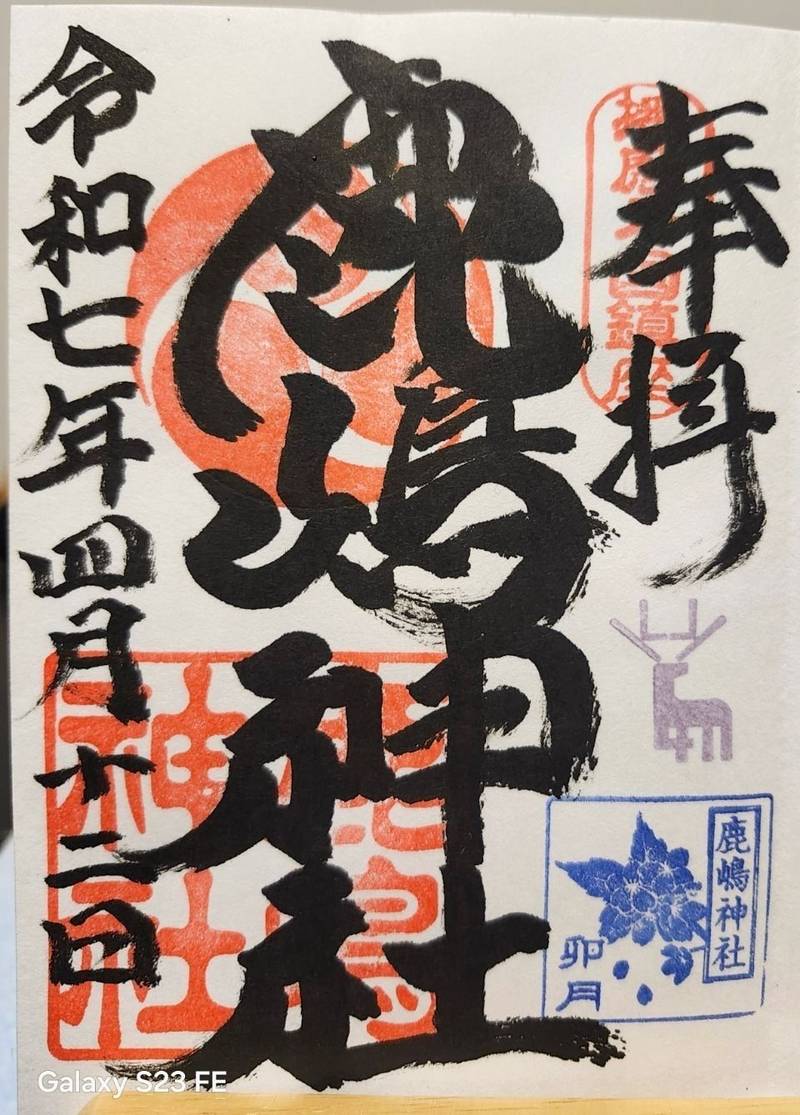 奉拝
鎮座
鹿嶋神社
令和七年四月十二日
神社
鹿嶋神社
卯月
Galaxy S23 FE